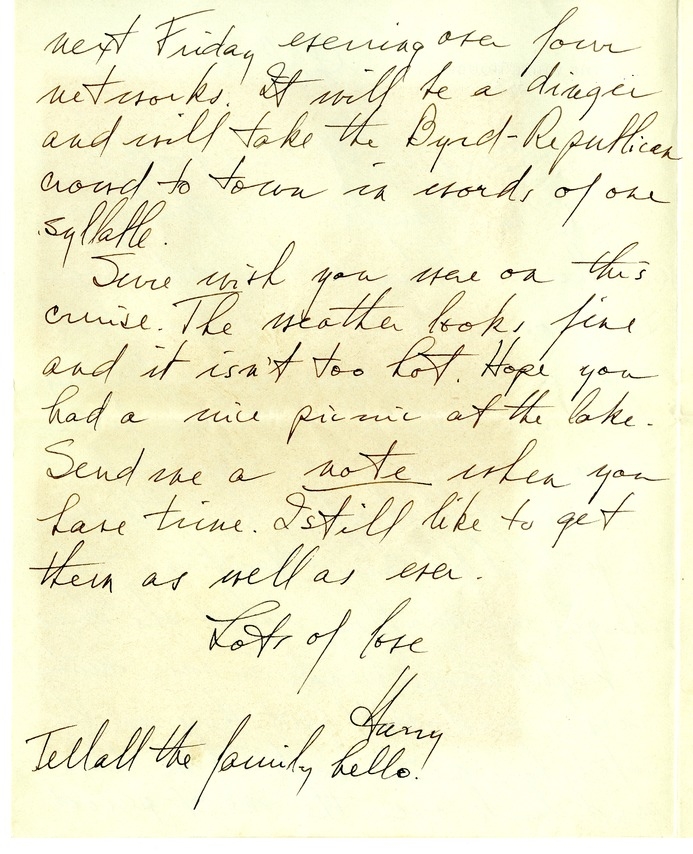 next Friday evening over four
networks. It will be a dinger
and will take the Byrd-Republican
crowd to town in words of one
syllable.
Sure wish you were on this
cruise. The weather looks fine
and it isn't too hot. Hope you
had a nice picnic at the lake.
Send me a note when you
have time. I still like to get
them as well as ever.
Lots of love
Harry
Tell all the family hello!